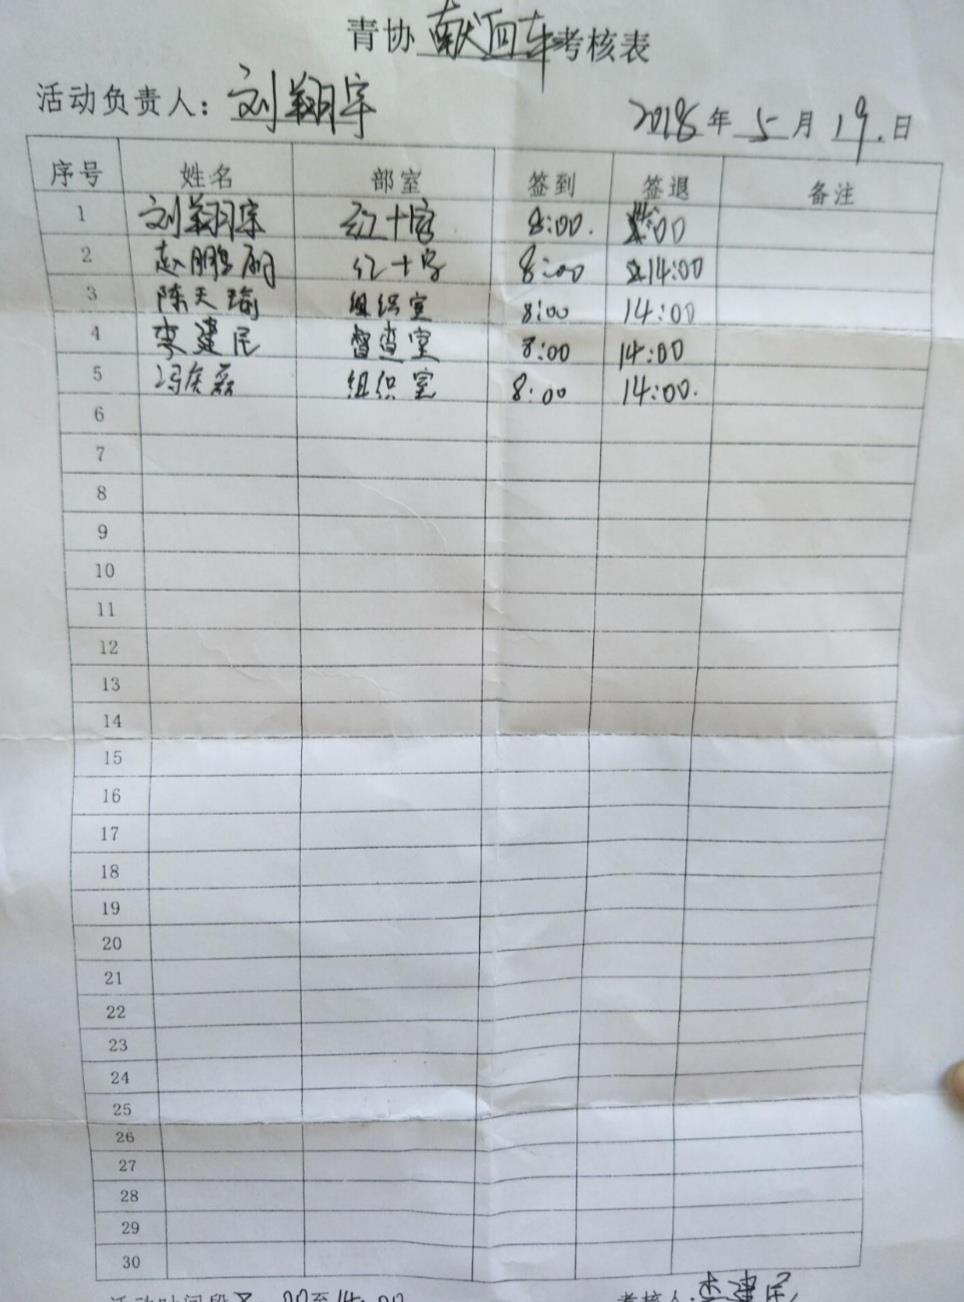 青协 献血车 考核表
活动负责人：刘翔宇 2018年 5 月 19.日
序号 姓名 部室 签到 签退 备注
1 刘翔宇 红十字 8:00. 00
2 赵鹏 红十字 8:00 14:00
3 陈天瑜 组织室 8:00 14:00
4 李建民 督查室 8:00 14:00
5 冯 磊 组织室 8:00 14:00.
6
7
8
9
10
11
12
13
14
15
16
17
18
19
20
21
22
23
24
25
26
27
28
29
30
活动时间段 00至14:00 考核人:李建民